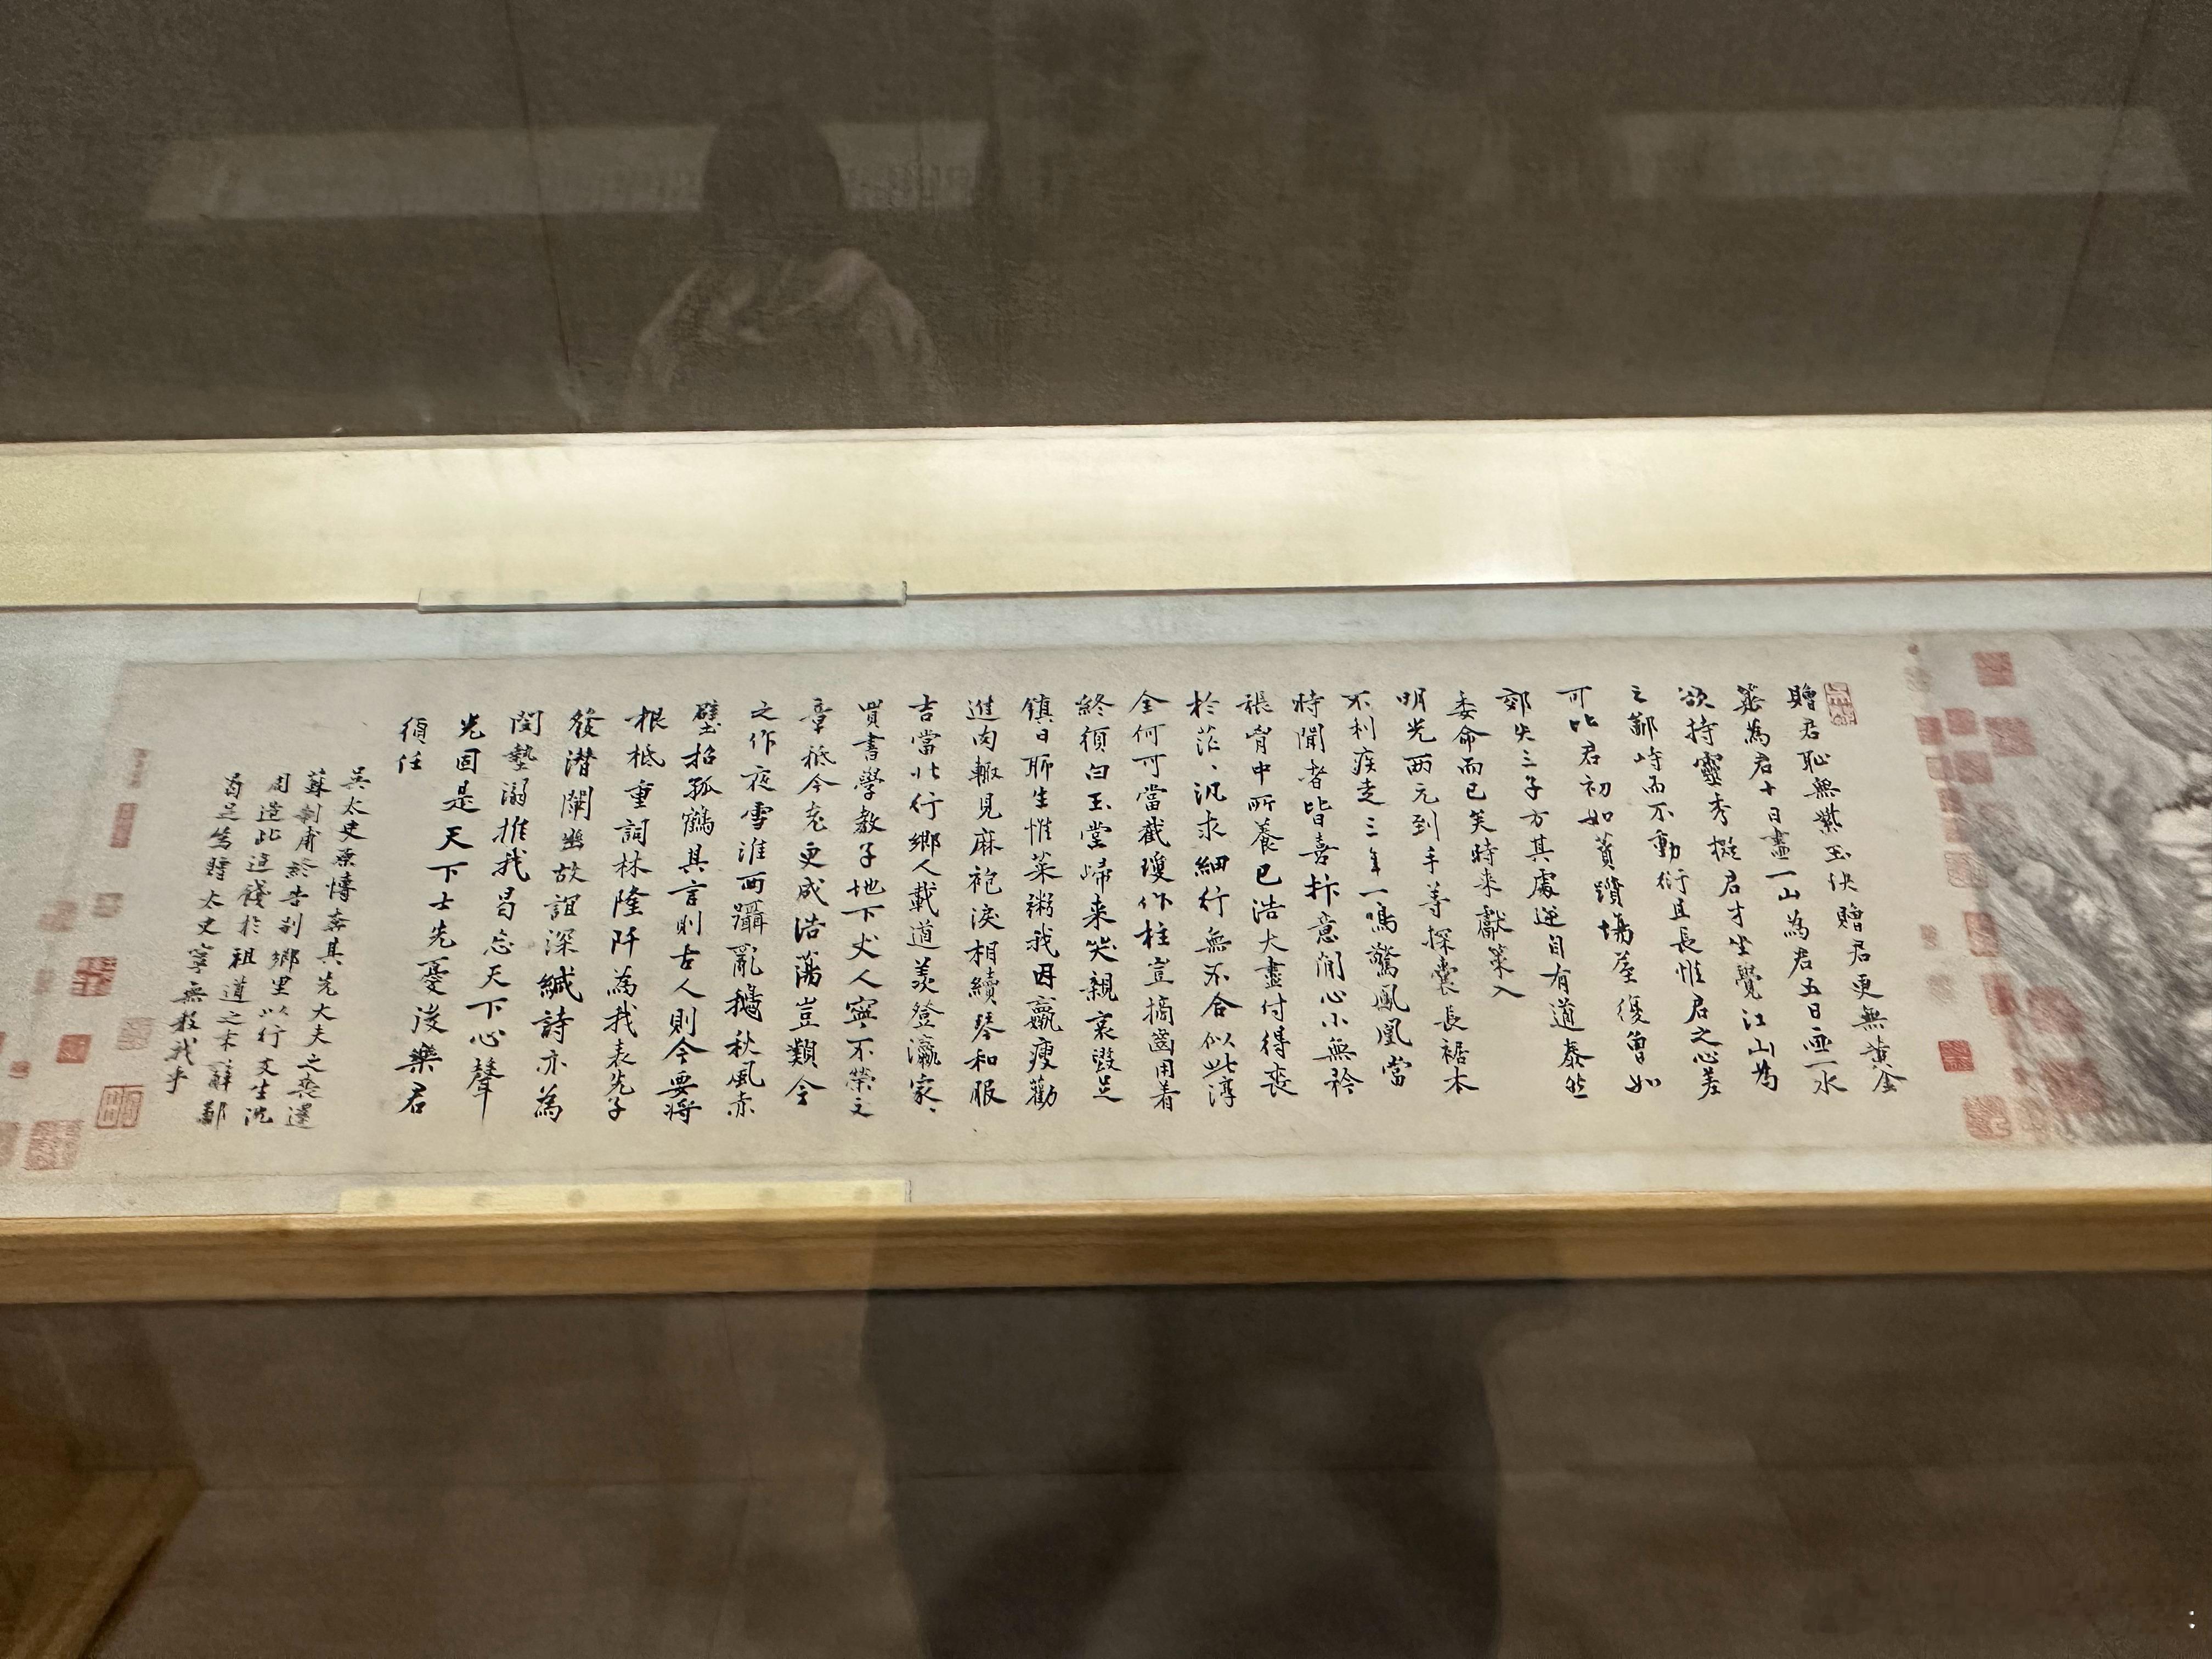 贈君恥無紫玉玦贈君更無黃金
罍為君十日畫一山為君五日畫一水
欲持靈秀擬君才坐覺江山為
之鄙峙而不動衍且長惟君之心差
可比君初如蕢躓場屋復曾如
郊失三子方其處逆自有道泰然
委命而已矣時来獻策入
明光兩元到手等探囊長裾木
不利疾走三年一鳴驚鳳凰當
時聞者皆喜抃意閒心小無矜
張胷中所養已浩大盡付得喪
於茫、汎求細行無不合似此淳
全何可當截瓊作柱豈摘齒用着
終須白玉堂歸来哭親哀毀足
鎮日聊生惟菜粥我因羸瘦勸
進肉輙見麻袍淚相續琴和服
吉當北行鄉人載道羨登瀛家、
買書學教子地下犬人寧不榮文
章抵今羌更成浩蕩豈類今
之作夜雪淮西躡亂鵝秋風赤
壁招孤鶴其言則古人則今要將
根柢重詞林隆阡為我表先子
發潜闡幽故誼深緘詩亦為
閔墊溺推我曷忘天下心聲
光固是天下士先憂後樂君
須任
吳太史原博奔其先大夫之喪還
蘇制甫終告別鄉里以行友生沈
周造此追餞於祖道之末辭鄙
曷足為贈太史寧無教我乎